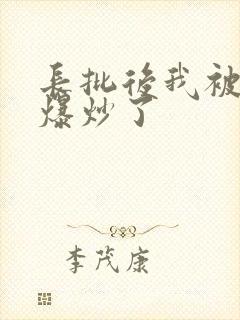 長批後我被
爆炒了
李茂康